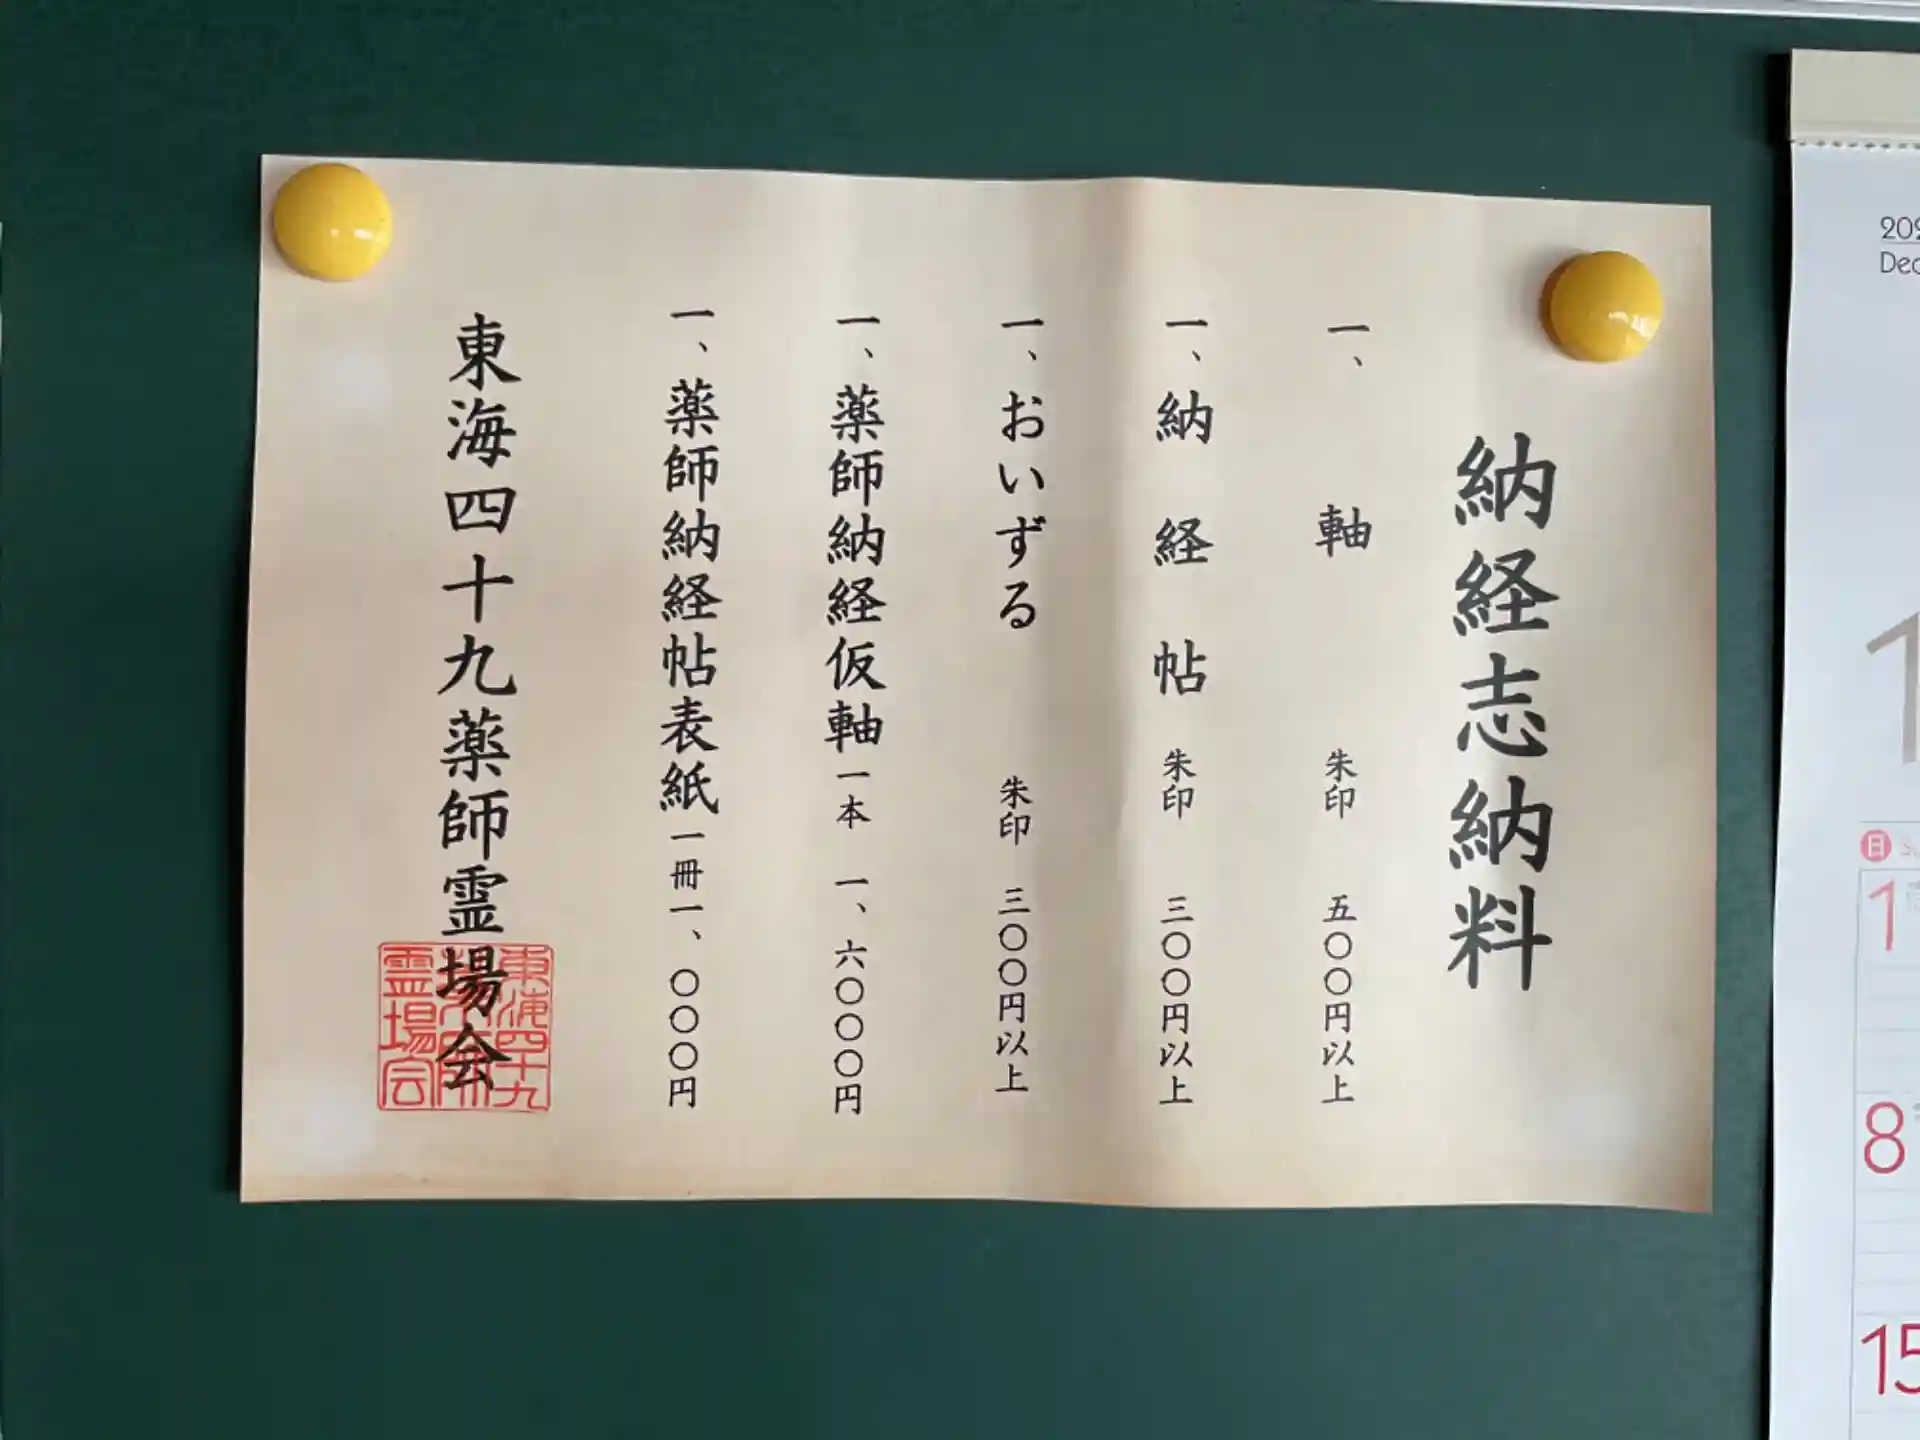 納経志納料
一、軸 朱印 五〇〇円以上
一、納経帖 朱印 三〇〇円以上
一、おいずる 朱印 三〇〇円以上
一、薬師納経仮軸 一本 一、六〇〇〇円
一、薬師納経帖表紙 一冊 一、〇〇〇円
東海四十九薬師霊場会
東海四十九
霊場会
202
Dec
1
日
1
8
15